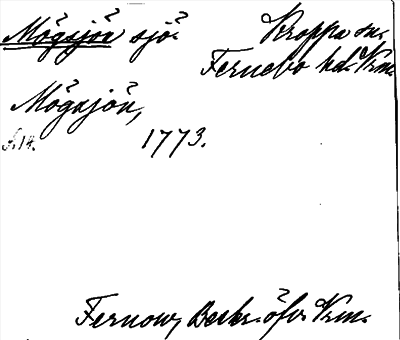 Mögsjön sjö. Kroppa sn.
Fernebo hd. Vrm.
Mögsjön,
A 14. 1773.
Fernow, Beskr. öfv. Vrm.